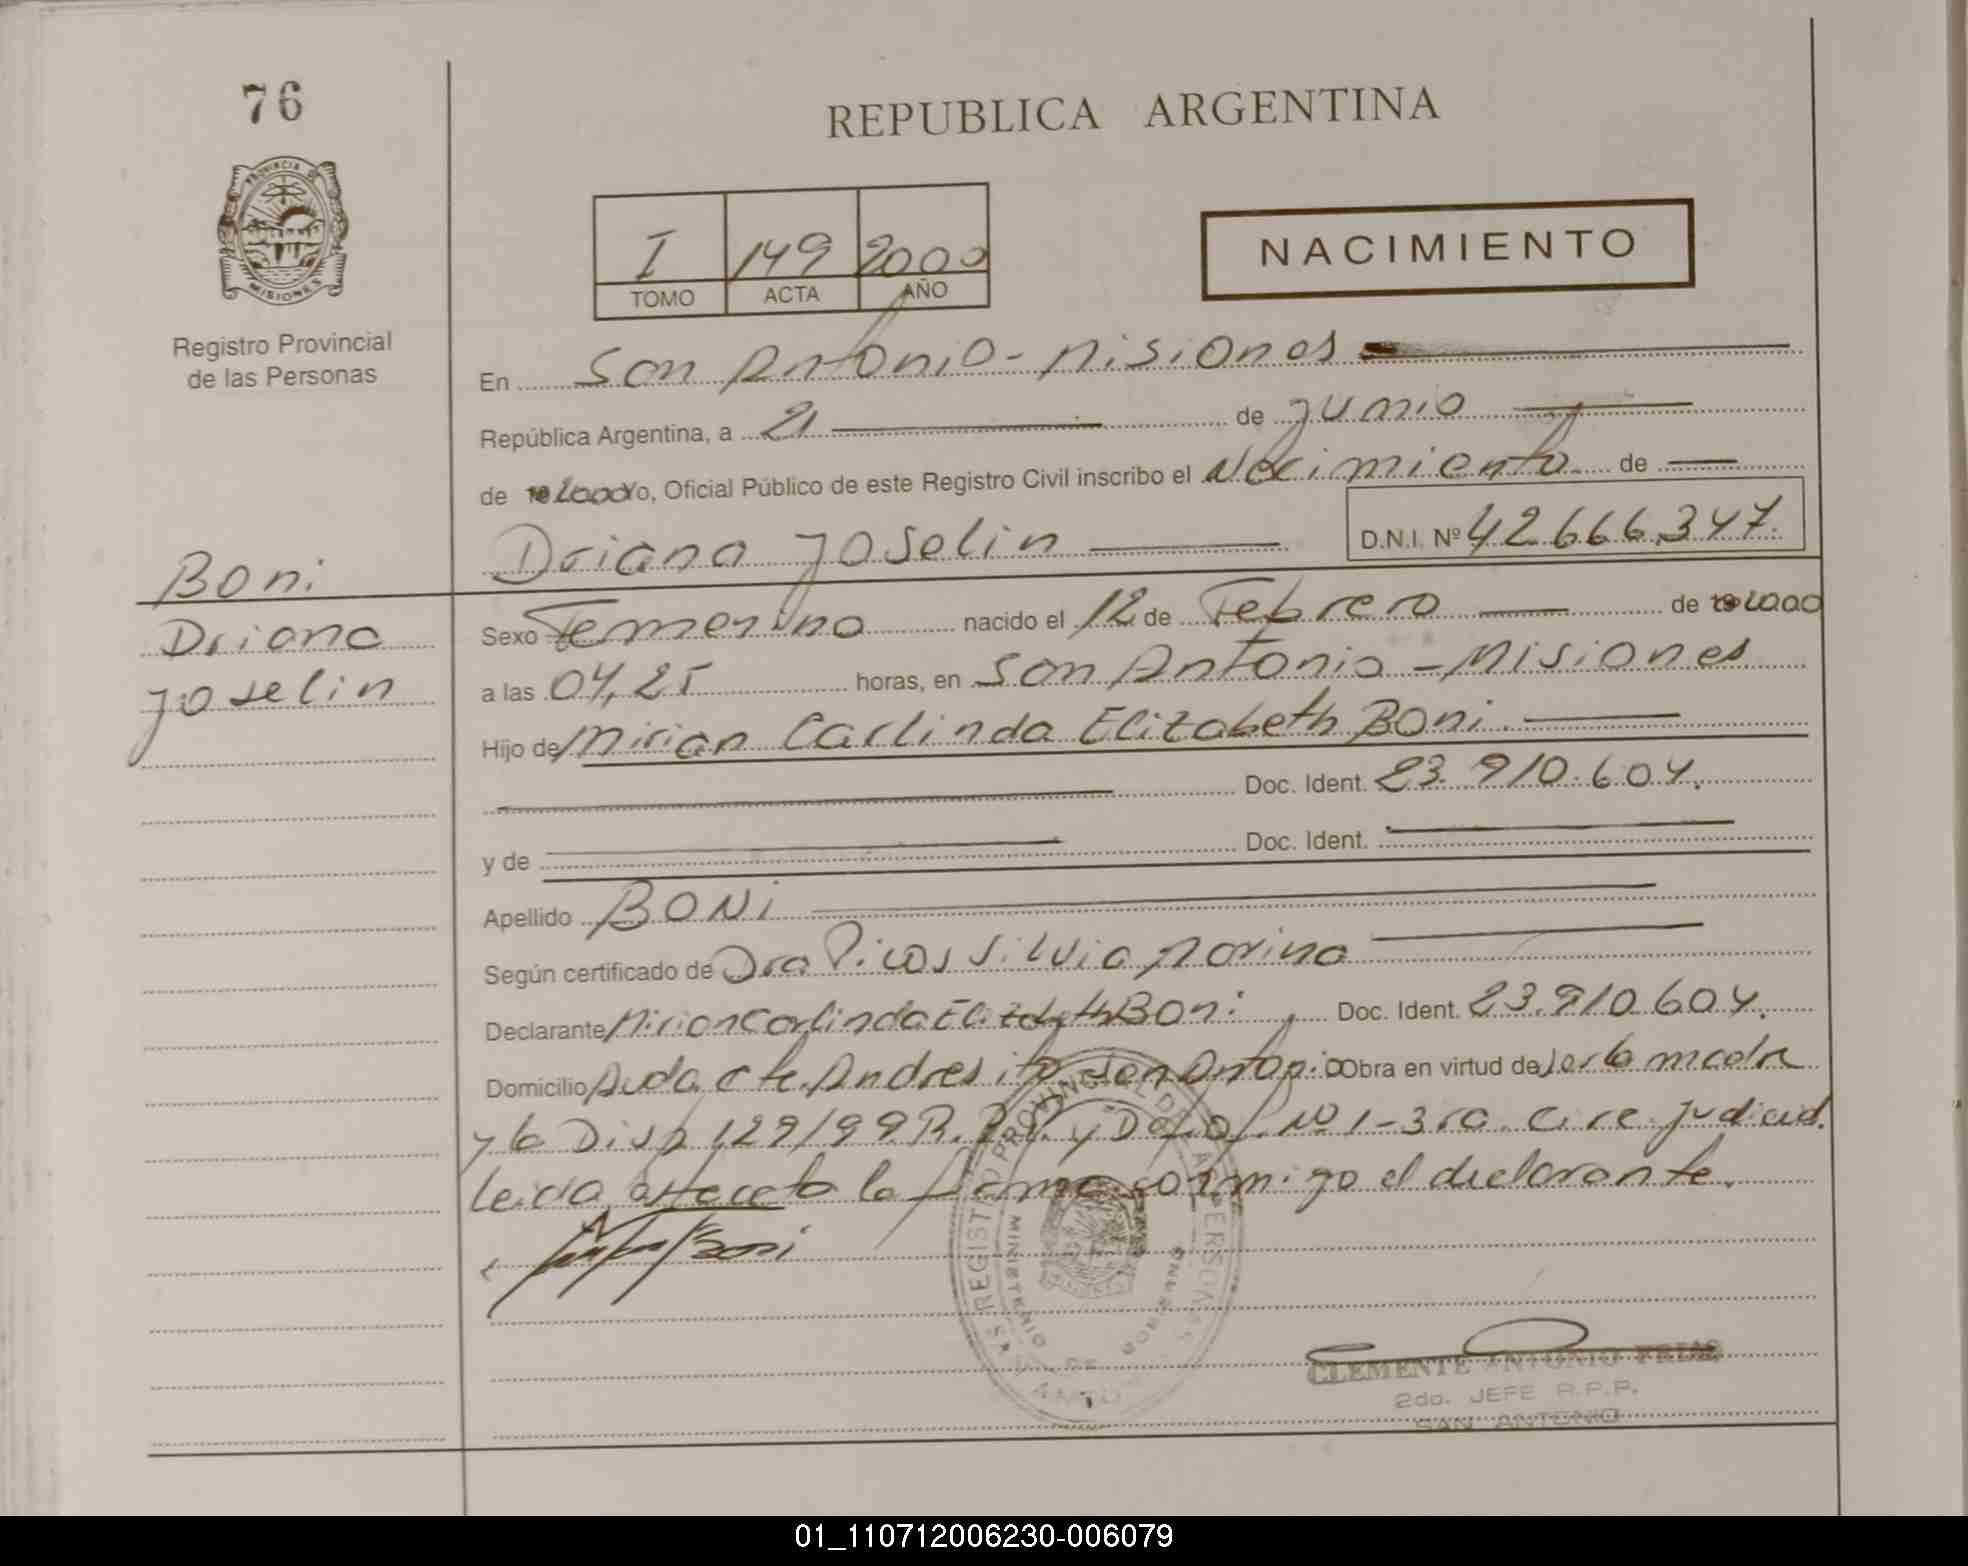 76
REPUBLICA ARGENTINA
PROVINCIA DE
MISIONES
Registro Provincial
de las Personas
I 149 2000
TOMO ACTA AÑO
NACIMIENTO
En San Antonio - Misiones
República Argentina, a 21 de junio
de 19 2000 Yo, Oficial Público de este Registro Civil inscribo el Nacimiento de
Driana Joselin D.N.I. Nº 42.666.347.
Boni
Driana
Joselin
Sexo Femenino nacido el 12 de Febrero de 19 2000
a las 04,25 horas, en San Antonio - Misiones
Hijo de Mirian Carlinda Elizabeth Boni
Doc. Ident. 23.910.604.
y de Doc. Ident.
Apellido BONi
Según certificado de Dra Picos Silvia Marina
Declarante Mirian Carlinda Elizabeth Boni Doc. Ident. 23.910.604.
Domicilio Avda Cte. Andresito San Antonio Obra en virtud de ser la madre
y la Disp 129/99 R.P.P. y Def. Of. Nº 1 - 3ra. Circ. judicial.
Leida el acta la firma conmigo el declarante.
Boni
REGISTRO PROVINCIAL DE LAS PERSONAS
MINISTERIO DE GOBIERNO
CLEMENTE ANTONIO FRIAS
2do. JEFE R.P.P.
SAN ANTONIO
01_110712006230-006079